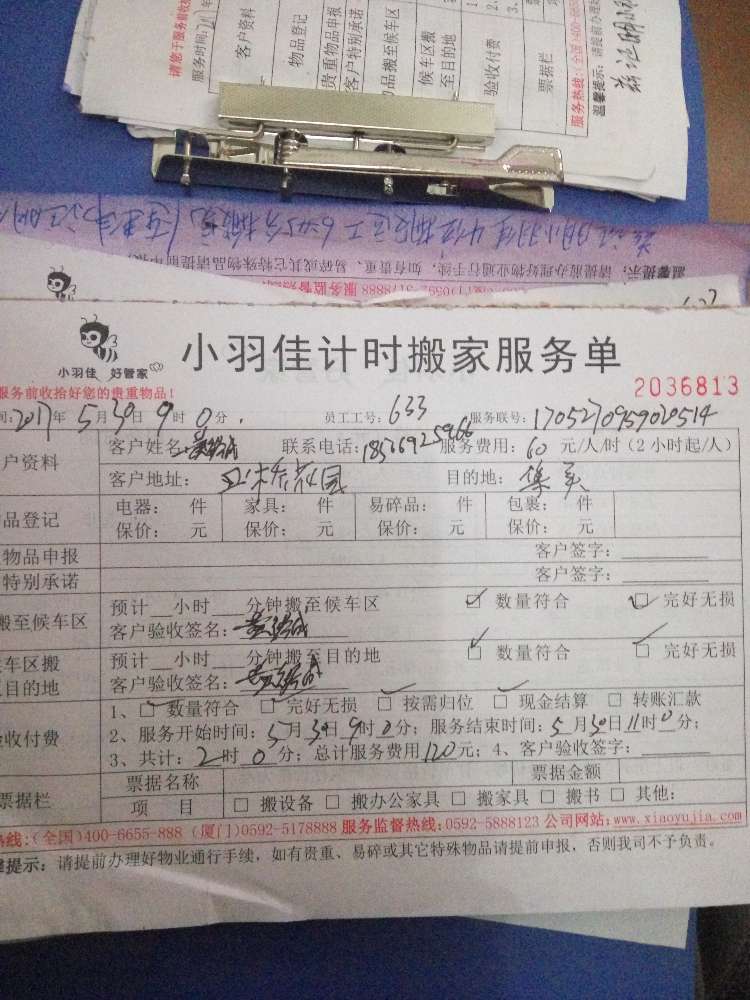 请您于服务前收拾
服务时间:201 年
客户资料
物品登记
贵重物品申报
客户特别承诺
物品搬至候车区
候车区搬
至目的地
验收付费
票据栏
服务热线:(全国)400-6655
温馨提示:请提前办理好
温馨提示:请提前办理好物业通行手续,如有贵重、易碎或其它特殊物品请提前申报
5178888 服务监督热线
小羽佳 好管家
小羽佳计时搬家服务单
服务前收拾好您的贵重物品!
2036813
间:2017年 5月30日 9时0分。 员工工号:633 服务联号:1705270959020514
户资料 客户姓名: 联系电话: 服务费用:60 元/人/时(2小时起/人)
客户地址: 花园 目的地:集美
品登记 电器: 件 家具: 件 易碎品: 件 包裹: 件
保价: 元 保价: 元 保价: 元 保价: 元
物品申报 客户签字:
特别承诺 客户签字:
搬至候车区 预计__小时___分钟搬至候车区 ☑ 数量符合 ☑ 完好无损
客户验收签名:
车区搬
目的地 预计__小时___分钟搬至目的地 ☑ 数量符合 ☑ 完好无损
客户验收签名:
收付费 1、☑ 数量符合 ☑ 完好无损 ☑ 按需归位 ☑ 现金结算 □ 转账汇款
2、服务开始时间:5月30日9时0分;服务结束时间:5月30日11时0分;
3、共计:2时0分;总计服务费用120元;4、客户验收签字:
票据栏 票据名称 票据金额
项 目 □ 搬设备 □ 搬办公家具 □ 搬家具 □ 搬书 □ 其他:
热线:(全国)400-6655-888 (厦门)0592-5178888 服务监督热线:0592-5888123 公司网站:www.xiaoyujia.com
提示:请提前办理好物业通行手续,如有贵重、易碎或其它特殊物品请提前申报,否则我司不予负责。